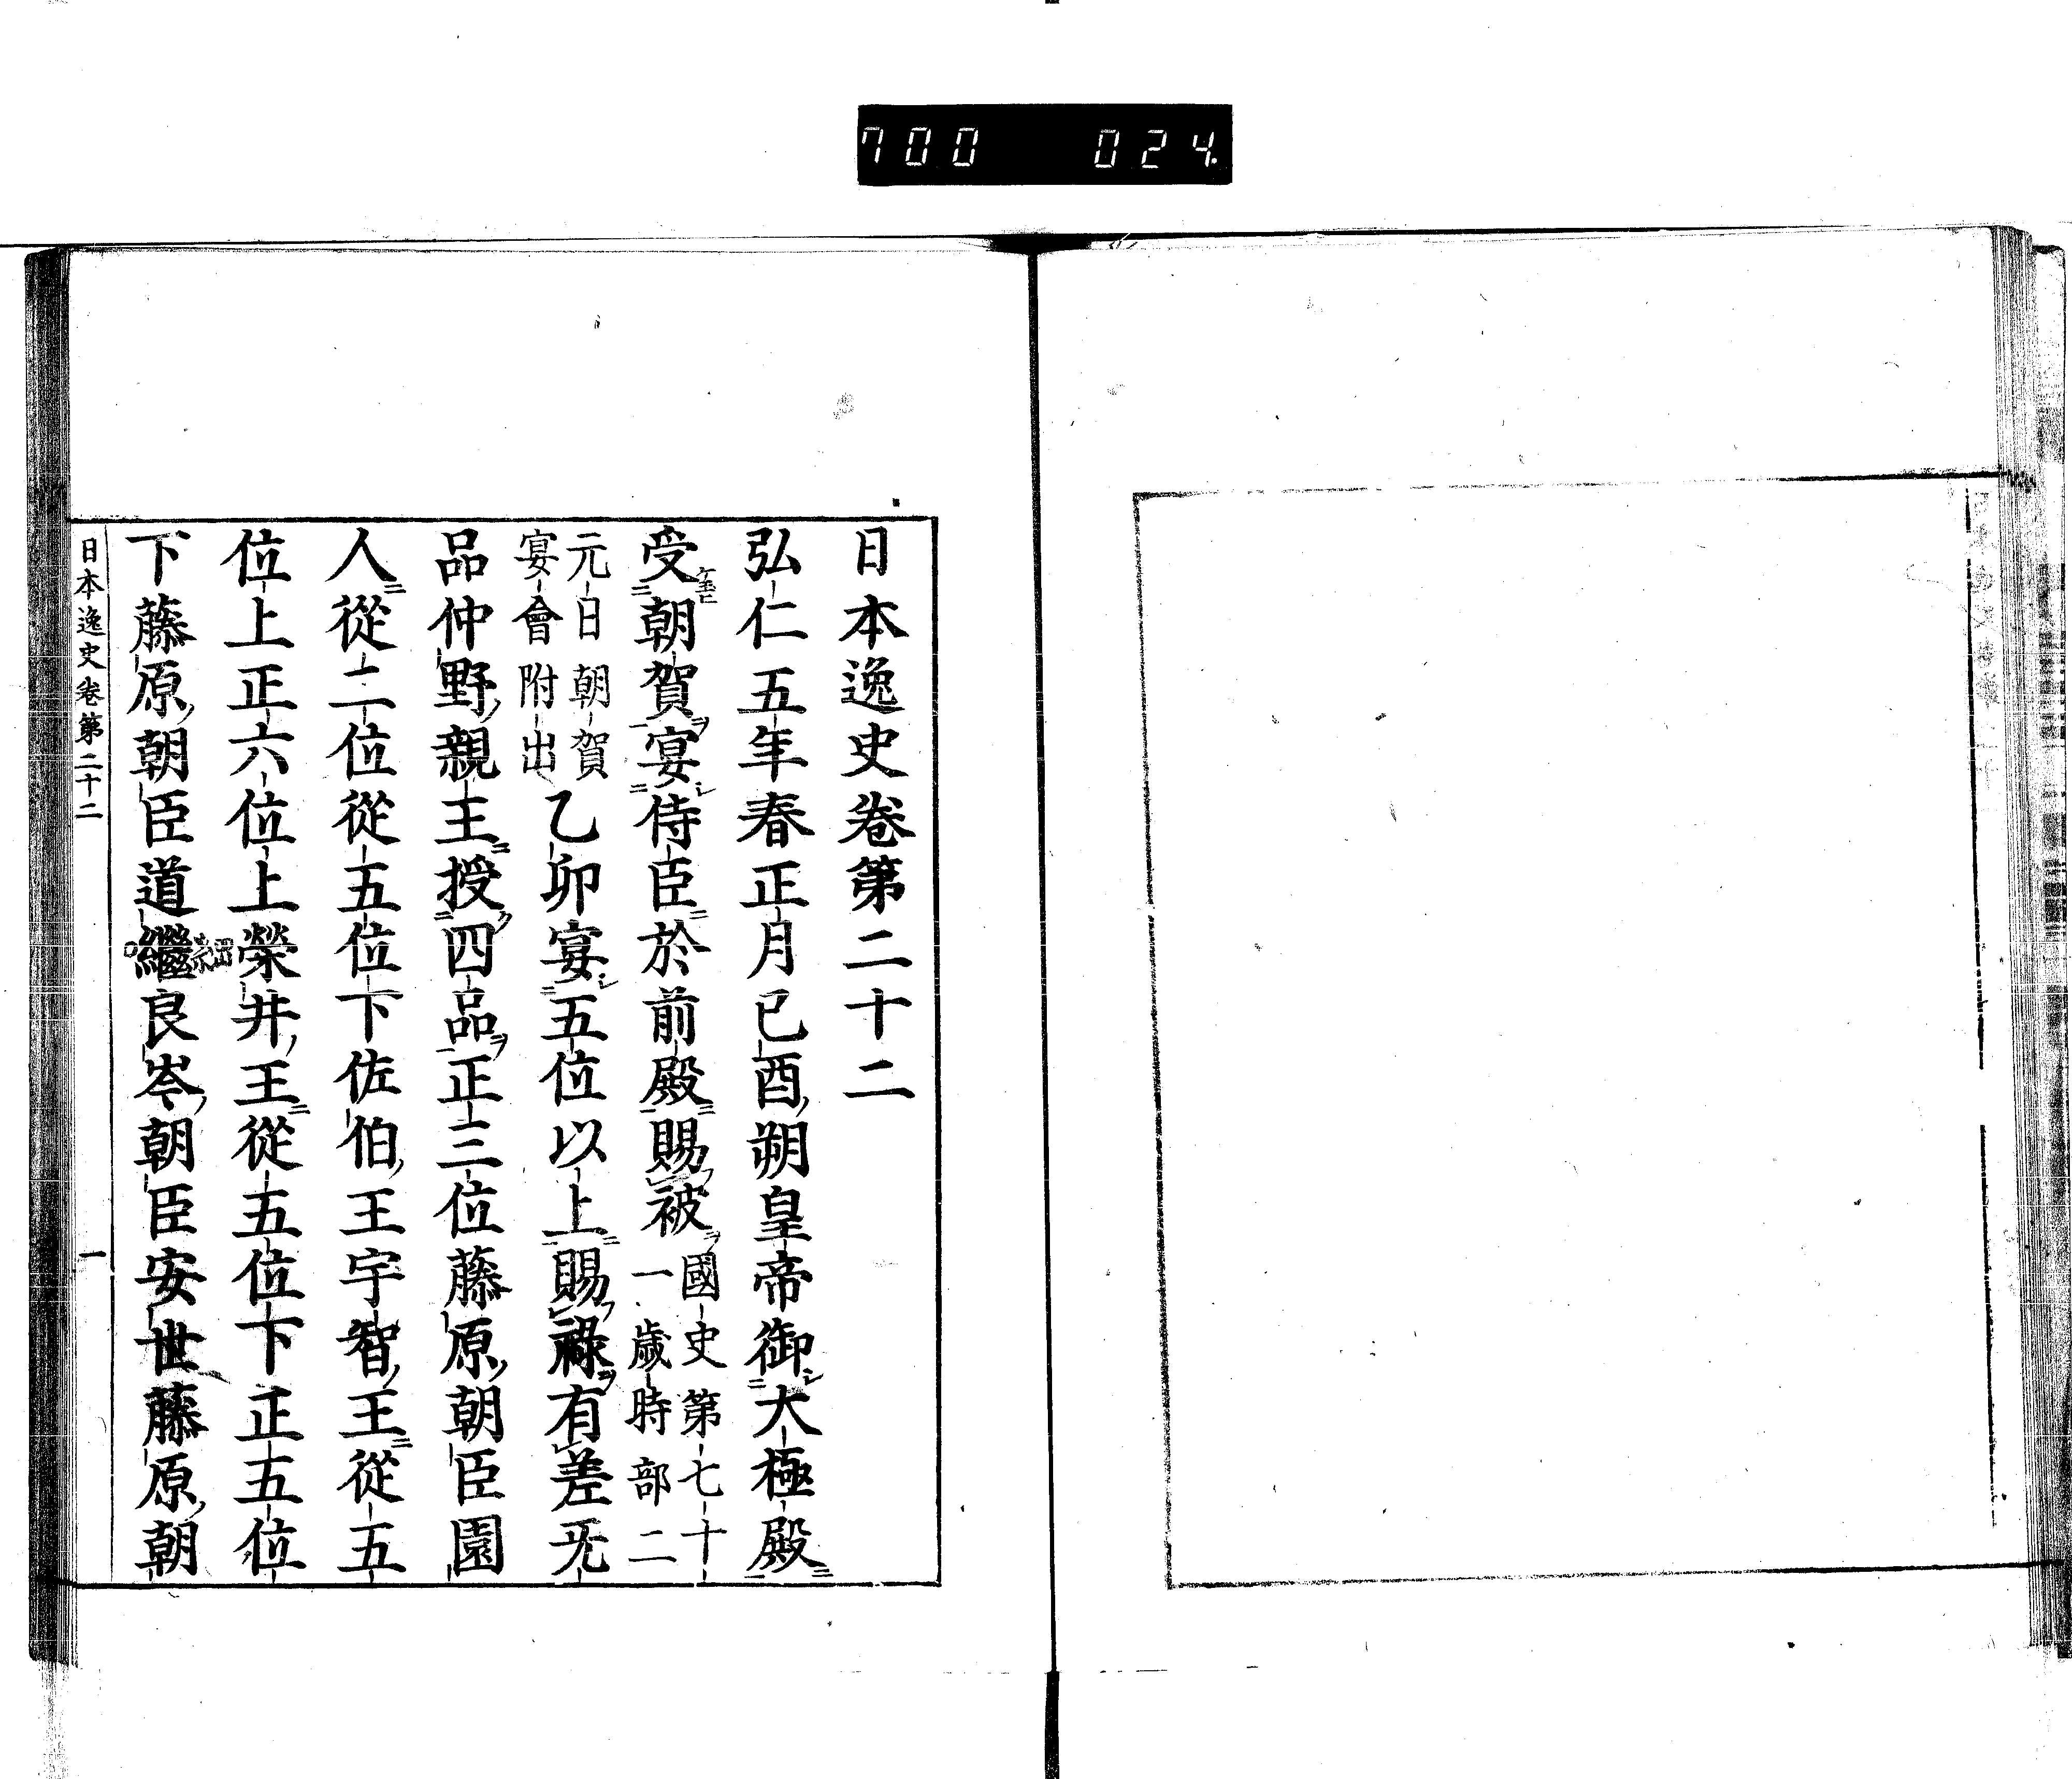 700 024
日本逸史卷第二十二
弘仁五年春正月己酉朔皇帝御大極殿
受朝賀宴侍臣於前殿賜被國史第七十一歲時部二
元日朝賀宴會附出乙卯宴五位以上賜祿有差无
品仲野親王授四品正三位藤原朝臣園
人從二位從五位下佐伯王宇智王從五
位上正六位上榮井王從五位下正五位
下藤原朝臣道繼良岑朝臣安世藤原朝
日本逸史卷第二十二 一